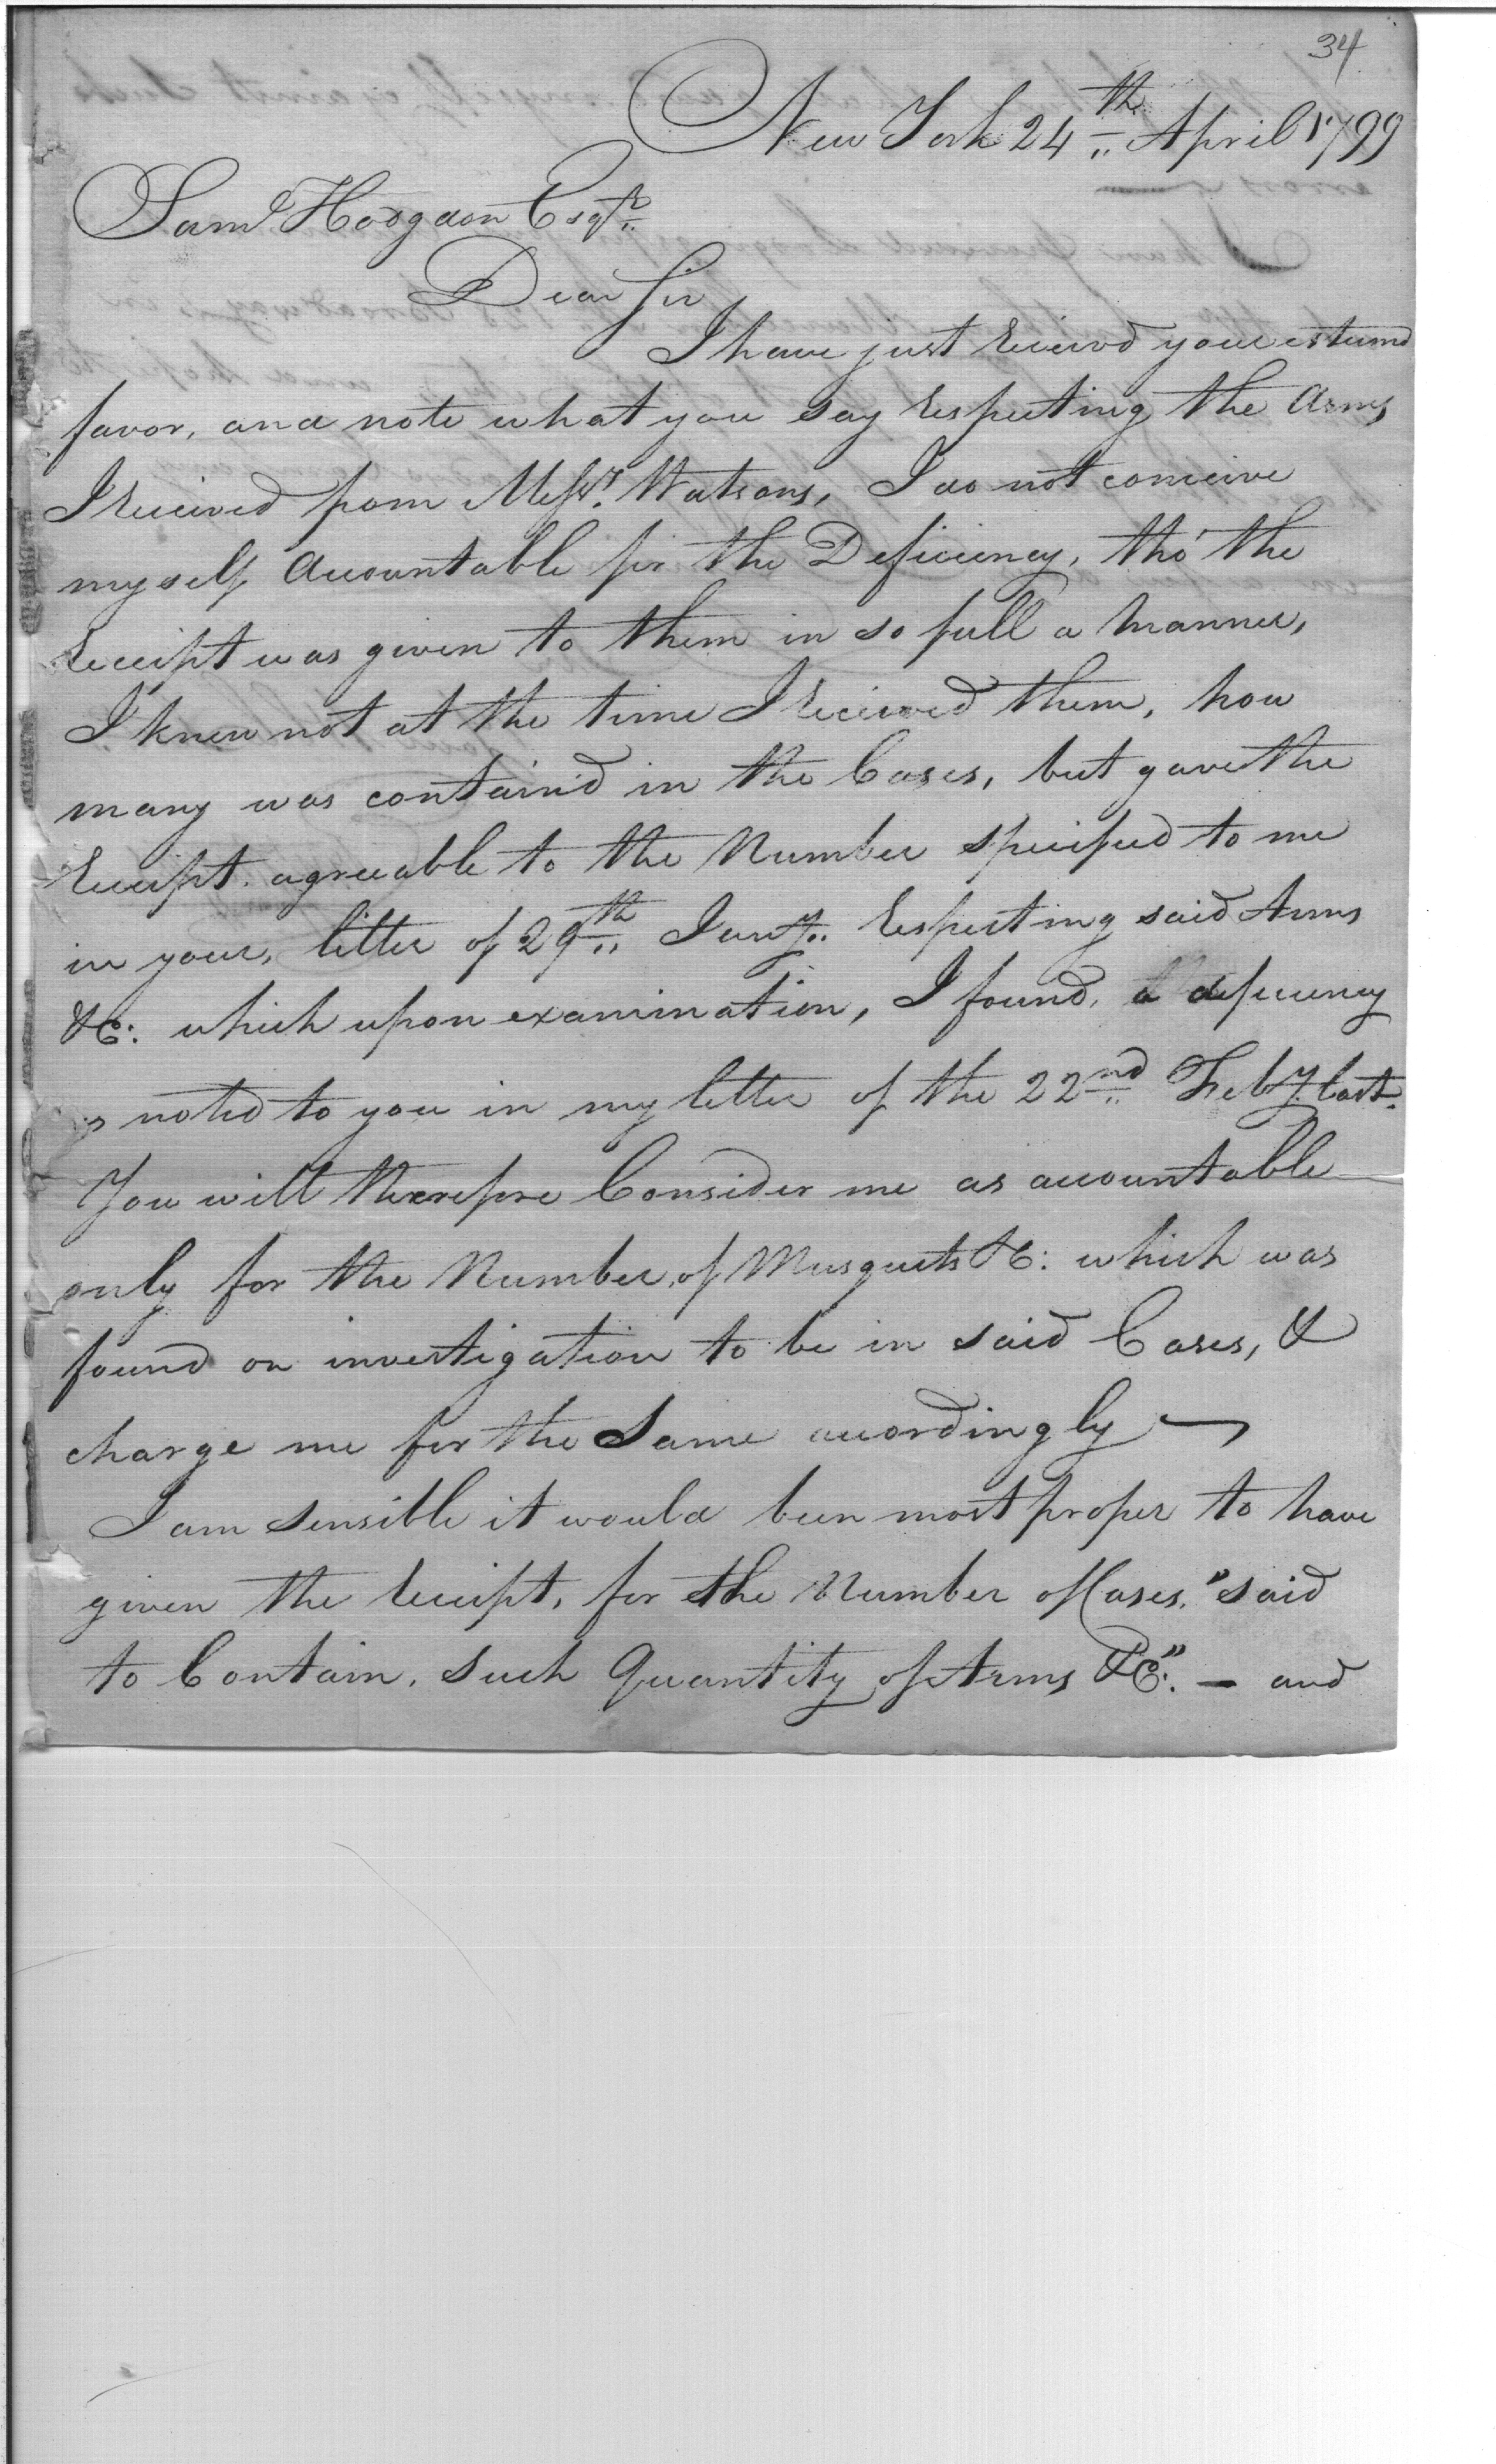 34
New York 24th April 1799
Saml Hodgdon Esqr
Dear Sir
I have just receivd your esteemd
favor, and note what you say respecting the Arms
I received from Messrs. Watsons, I do not conceive
myself Accountable for the Deficiency, tho' the
receipt was given to them in so full a manner,
I knew not at the time I received them, how
many was contain'd in the Cases, but gave the
receipt agreeable to the Number specified to me
in your, letter of 29th Jany. respecting said Arms
&C: which upon examination, I found, a deficiency
as noted to you in my letter of the 22nd Feby. last.
You will therefore Consider me as accountable
only for the Number, of Musquets &C: which was
found on investigation to be in said Cases, &
charge me for the Same accordingly —
I am sensible it would been most proper to have
given the receipt, for the Number of Cases, "said
to Contain, such Quantity of Arms &C:" — and